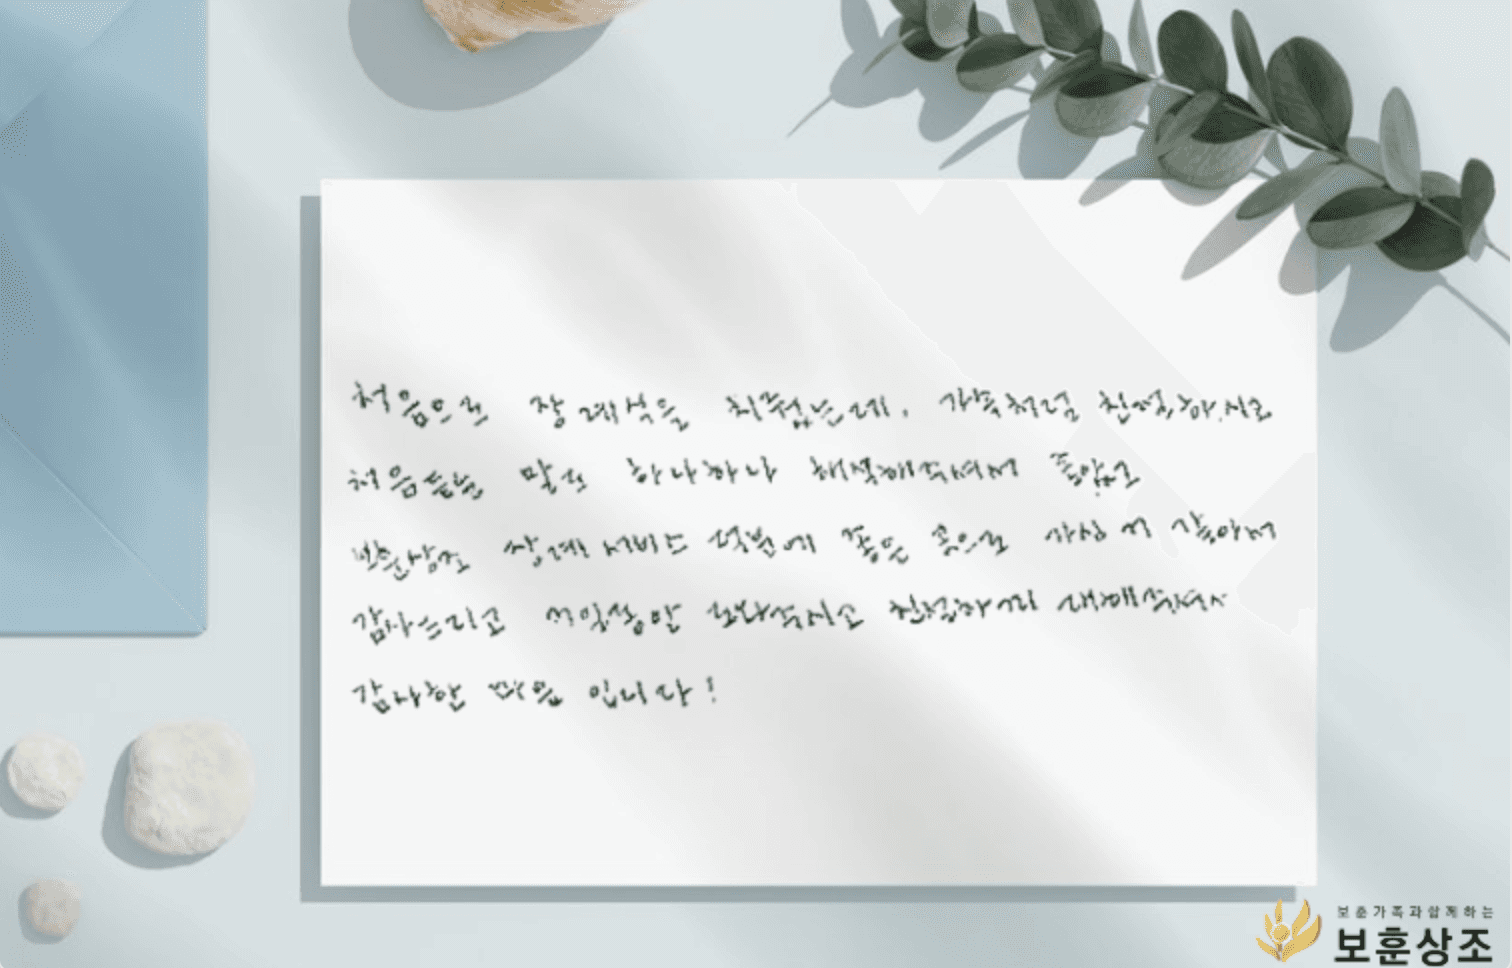 처음으로 장례식을 치뤘는데, 가족처럼 친절하시고
처음듣는 말도 하나하나 해석해주셔서 좋았고
보훈상조 상례서비스 덕분에 좋은 곳으로 가신 거 같아서
감사드리고 3일동안 도와주시고 친절하게 대해주셔서
감사한 마음 입니다!
보훈가족과함께하는
보훈상조